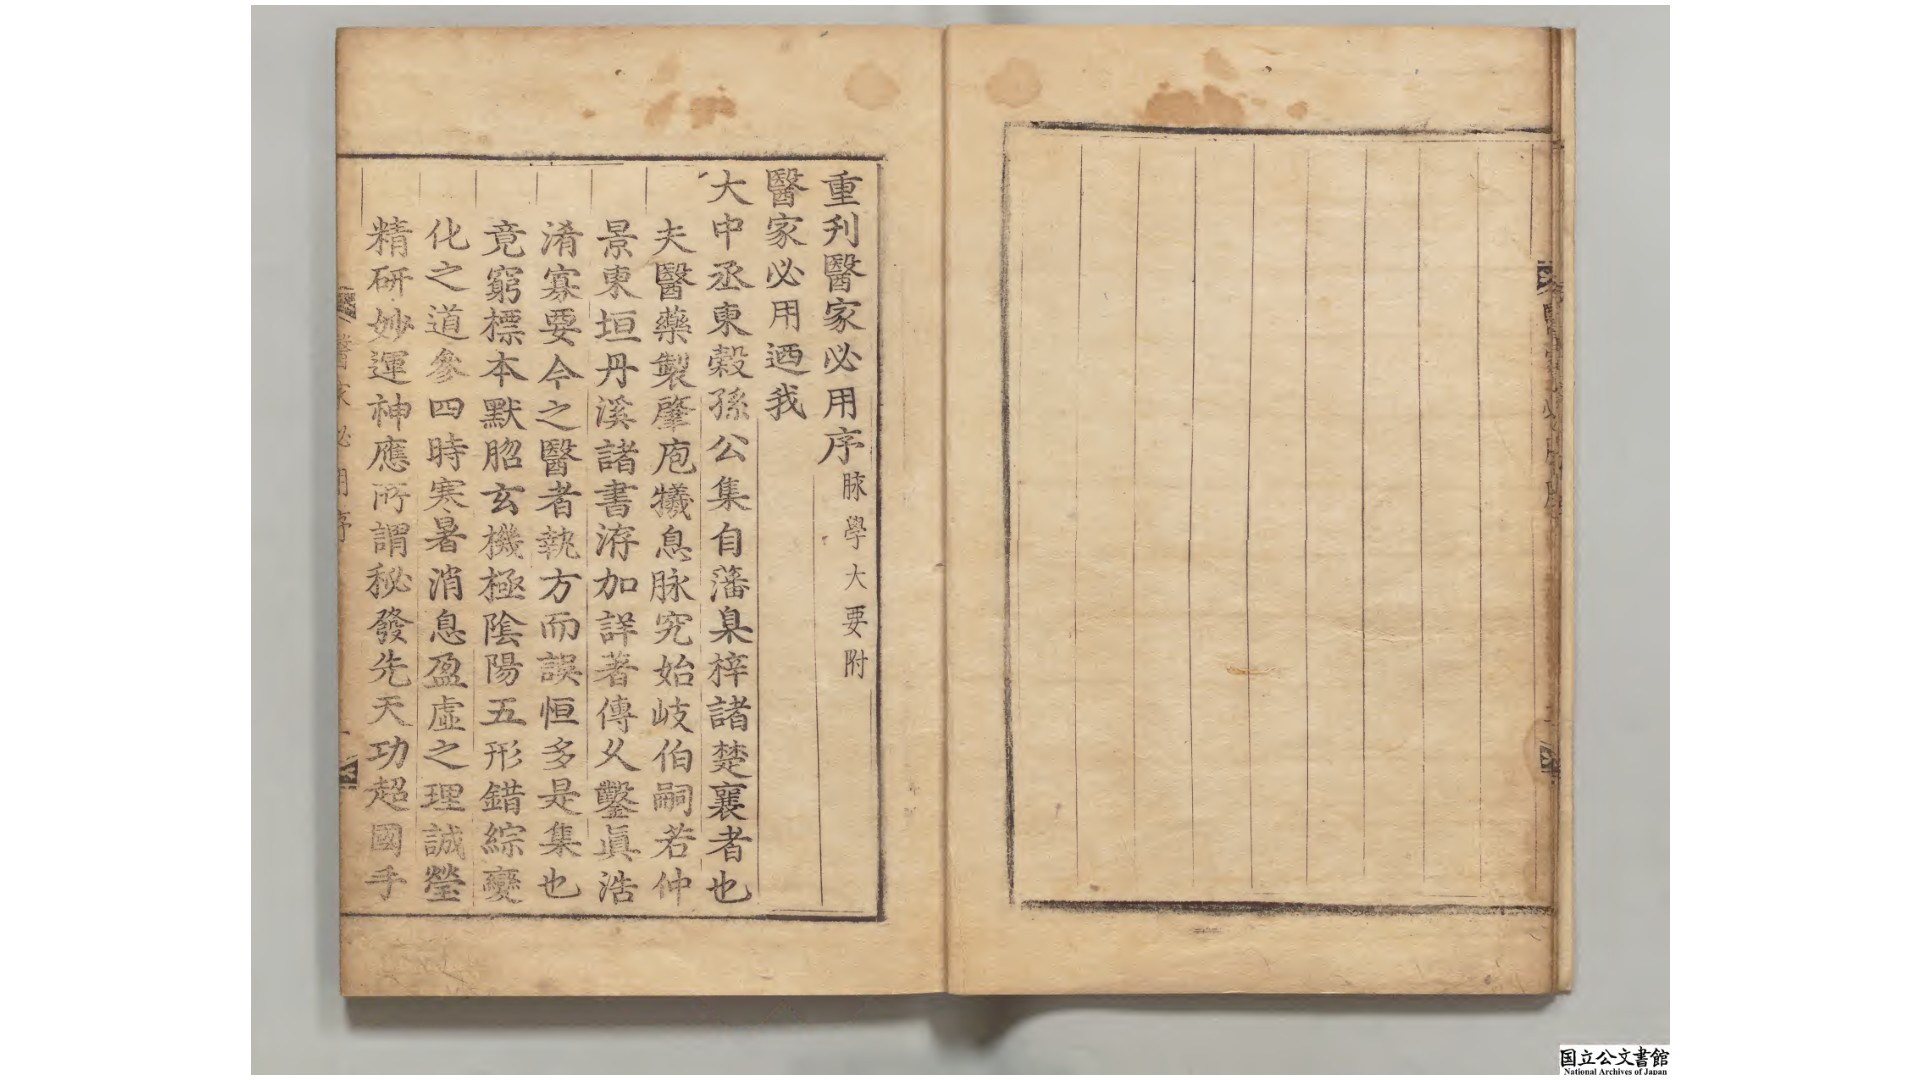 重刊醫家必用序 脉學大要附
醫家必用迺我
大中丞東穀孫公集自藩臬梓諸楚襄者也
夫醫藥製肇庖犠息脉究始岐伯嗣若仲
景東垣丹溪諸書洊加詳著傳乆鑿眞浩
淆寡要今之醫者執方而誤恒多是集也
竟窮標本默胋玄機極陰陽五形錯綜變
化之道參四時寒暑消息盈虛之理誠瑩
精研妙運神應所謂秘發先天功超國手
醫家必用序
国立公文書館
National Archives of Japan